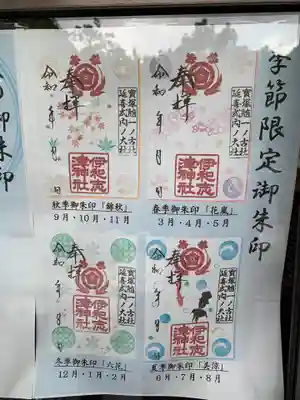 季節限定御朱印
御朱印
奉拝
寳塚随一ノ古社
延喜式内ノ大社
伊和志
津神社
令和 年 月 日
春季御朱印「花嵐」
3月・4月・5月
奉拝
寳塚随一ノ古社
延喜式内ノ大社
伊和志
津神社
令和 年 月 日
秋季御朱印「錦秋」
9月・10月・11月
奉拝
寳塚随一ノ古社
延喜式内ノ大社
伊和志
津神社
令和 年 月 日
夏季御朱印「美涼」
6月・7月・8月
奉拝
寳塚随一ノ古社
延喜式内ノ大社
伊和志
津神社
令和 年 月 日
冬季御朱印「六花」
12月・1月・2月